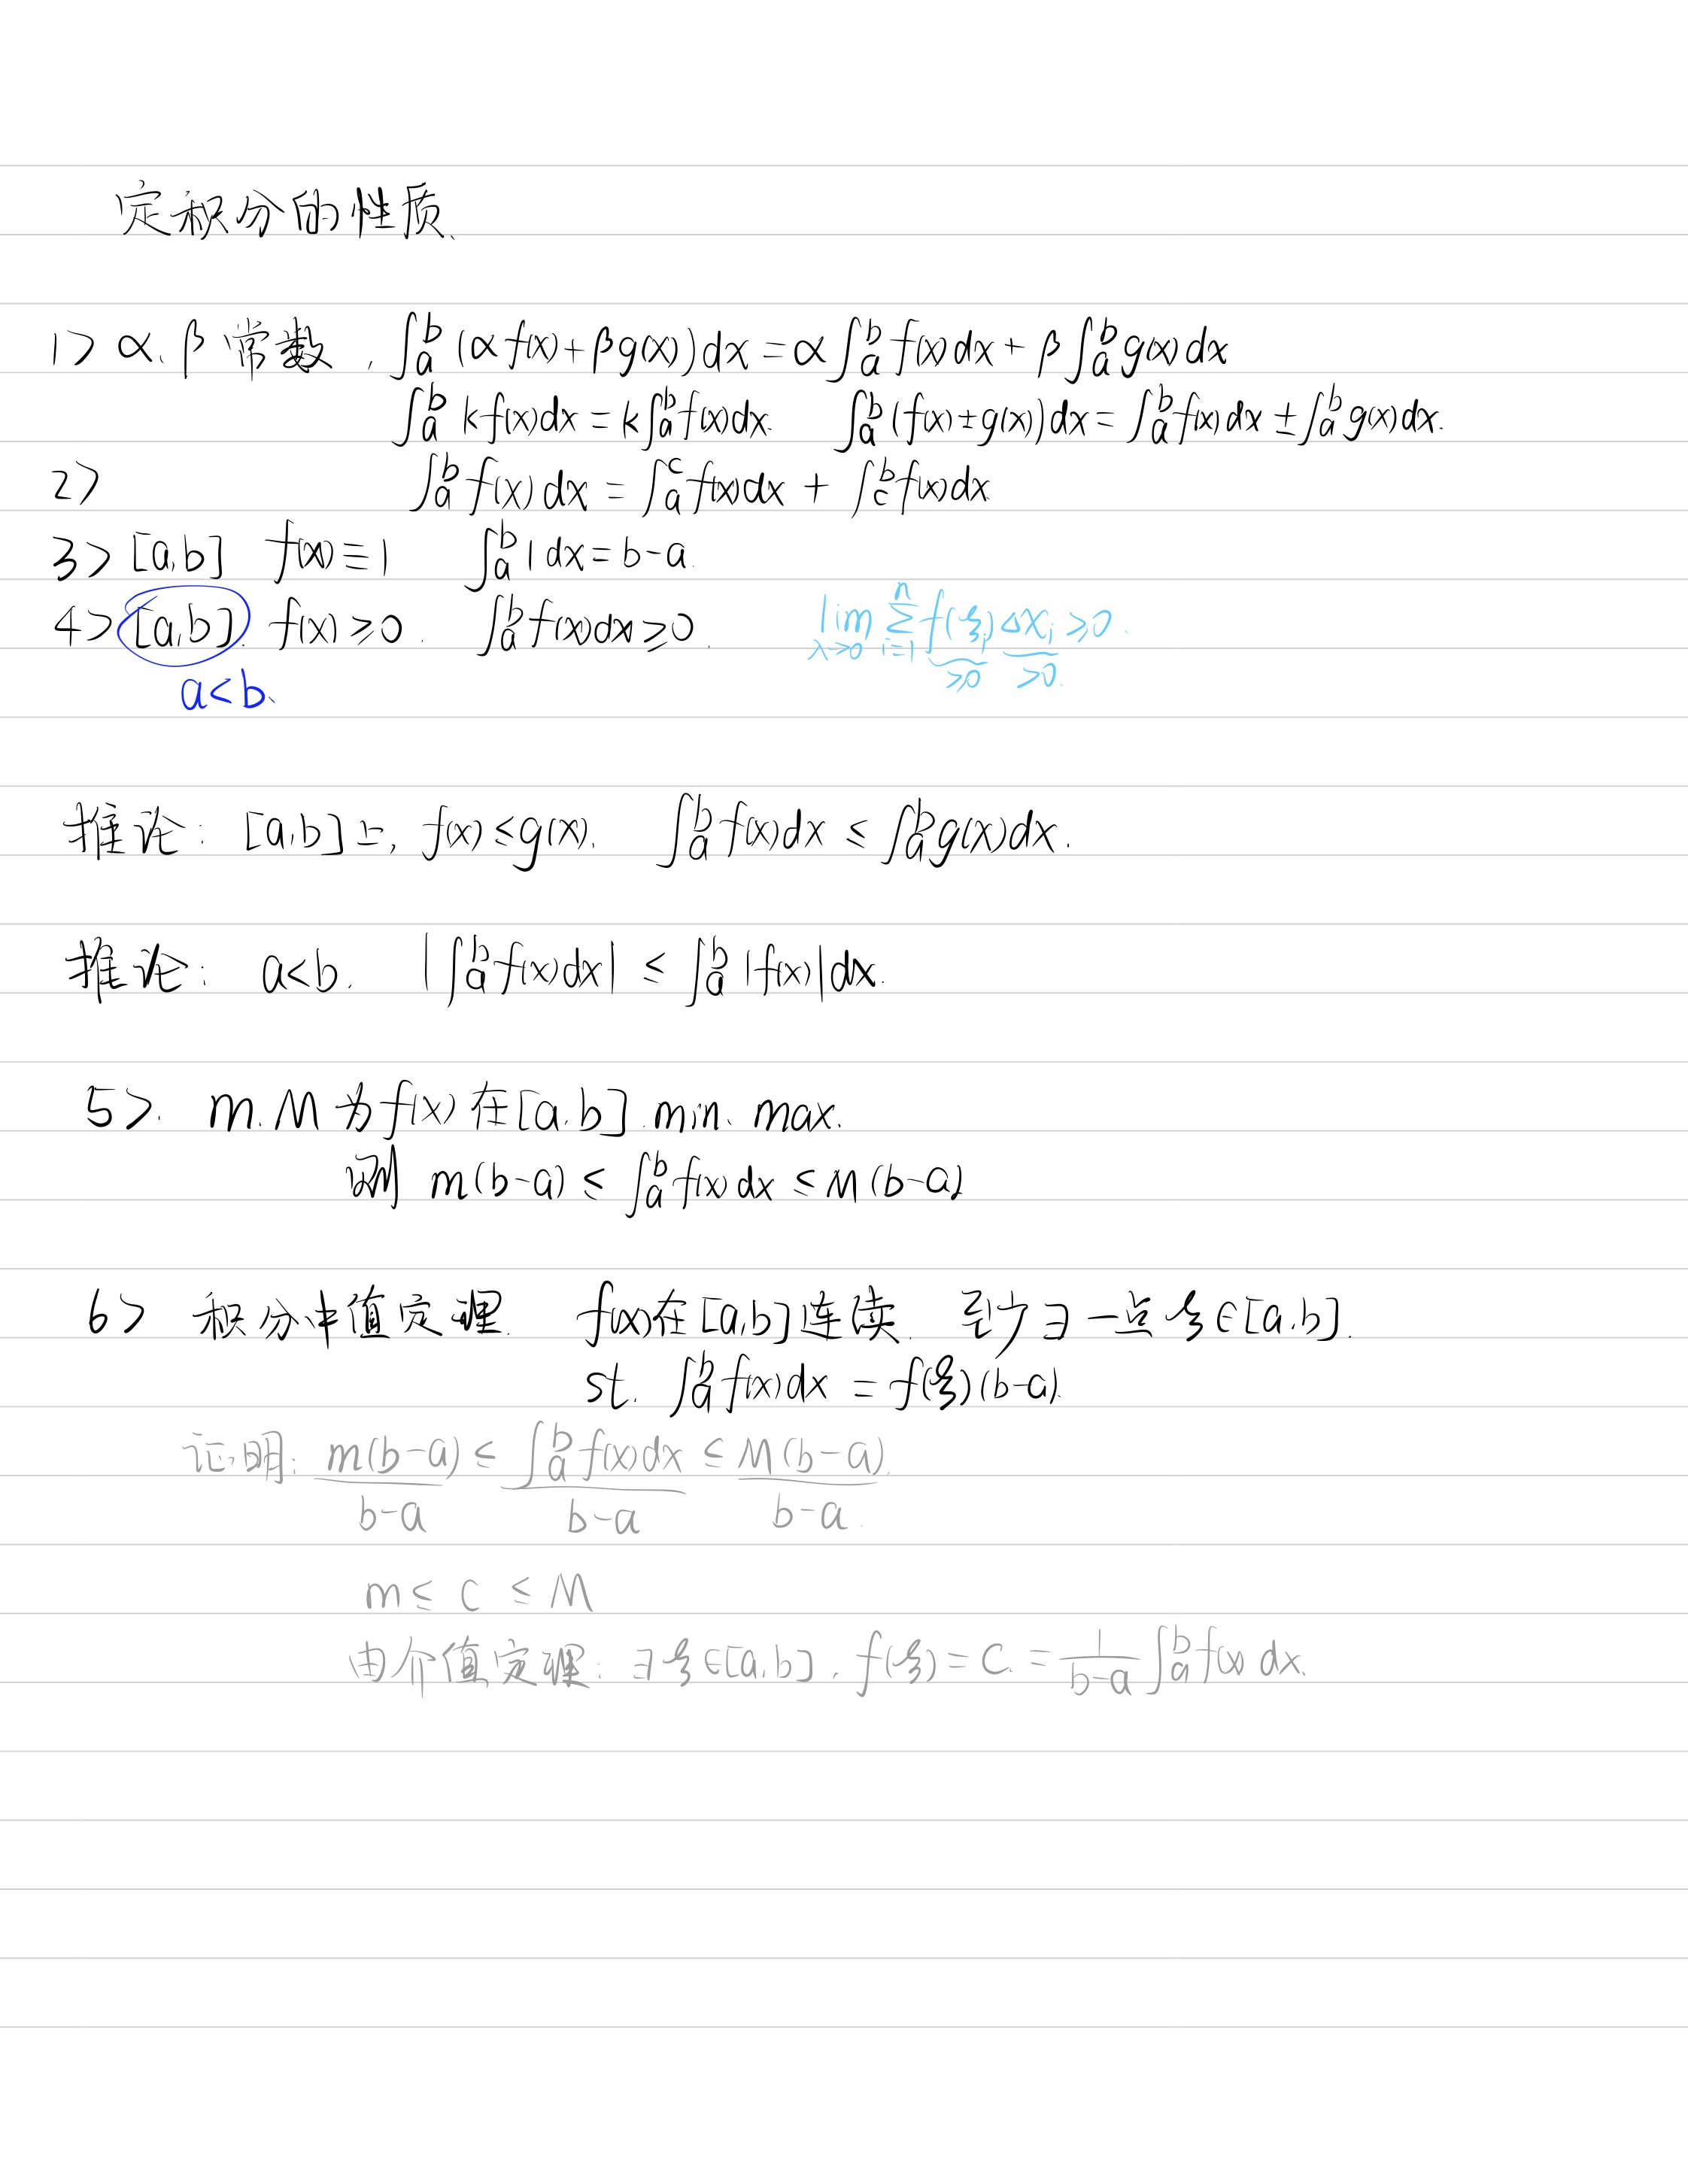 定积分的性质、
1> α、β 常数, ∫_a^b (αf(x)+βg(x))dx = α∫_a^b f(x)dx + β∫_a^b g(x)dx
∫_a^b kf(x)dx = k∫_a^b f(x)dx. ∫_a^b (f(x)±g(x))dx = ∫_a^b f(x)dx ± ∫_a^b g(x)dx.
2> ∫_a^b f(x)dx = ∫_a^c f(x)dx + ∫_c^b f(x)dx
3> [a,b] f(x)≡1 ∫_a^b 1dx = b-a.
4> [a,b]. f(x)≥0. ∫_a^b f(x)dx≥0. lim_{λ→0} Σ_{i=1}^n f(ξ_i) Δx_i ≥0.
≥0 >0.
a<b、
推论: [a,b]上, f(x)≤g(x). ∫_a^b f(x)dx ≤ ∫_a^b g(x)dx.
推论: a<b. |∫_a^b f(x)dx| ≤ ∫_a^b |f(x)|dx.
5>. m.M为f(x)在[a,b].min、max.
则 m(b-a) ≤ ∫_a^b f(x)dx ≤ M(b-a)
6> 积分中值定理. f(x)在[a,b]连续. 至少∃一点ξ∈[a,b].
st. ∫_a^b f(x)dx = f(ξ)(b-a).
证明: m(b-a)/(b-a) ≤ ∫_a^b f(x)dx/(b-a) ≤ M(b-a)/(b-a).
m ≤ c ≤ M
由介值定理: ∃ξ∈[a,b], f(ξ) = C. = 1/(b-a) ∫_a^b f(x)dx.